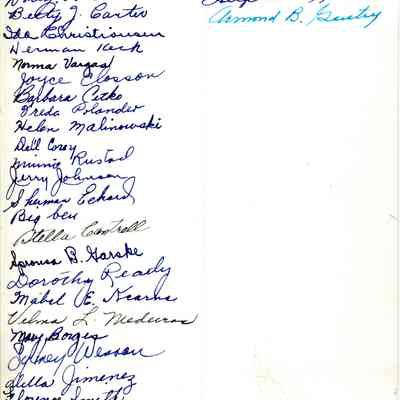 Betty J. Carter
Ida Christiansen
Herman Keck
Norma Vargas
Joyce Closson
Barbara Citko
Freda Polander
Helen Malinowski
Dell Corey
Minnie Rustad
Jerry Johnson
Sherman Eckard
Big ben
Stella Cantrell
B. Garske
Dorothy Ready
Mabel E. Kearns
Velma L. Medeiros
Mary Borges
Sydney Wesson
Della Jimenez
Florence Smith
Armond B. Gentry